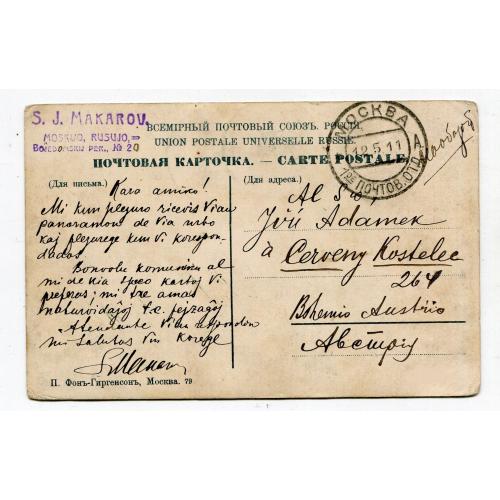 S. J. MAKAROV.
MOSKVO, RUSUJO,
per., № 20
ВСЕМІРНЫЙ ПОЧТОВЫЙ СОЮЗЪ. РОССІЯ.
UNION POSTALE UNIVERSELLE RUSSIE.
ПОЧТОВАЯ КАРТОЧКА. — CARTE POSTALE.
МОСКВА
12.5.11
ПОЧТОВ. ОТД.
(Для письма.)
Kara amiko!
Mi kun plezuro ricevis Vian
panoramon de Via urbo
kaj plezurege kun Vi korespon-
dados.
Bonvolu komuniki al
mi de kia speco kartoj Vi
preferas; mi tre amas
naturvidajoj t.e. pejzaĝoj
Atendante Vian respondon
mi salutas Vin korege
S. Makarov
(Для адреса.)
Al S-ro
Jiří Adamek
à Cerveny Kostelec
264
Bohemio Austrio
Австрія
П. Фонъ-Гиргенсонъ, Москва. 79